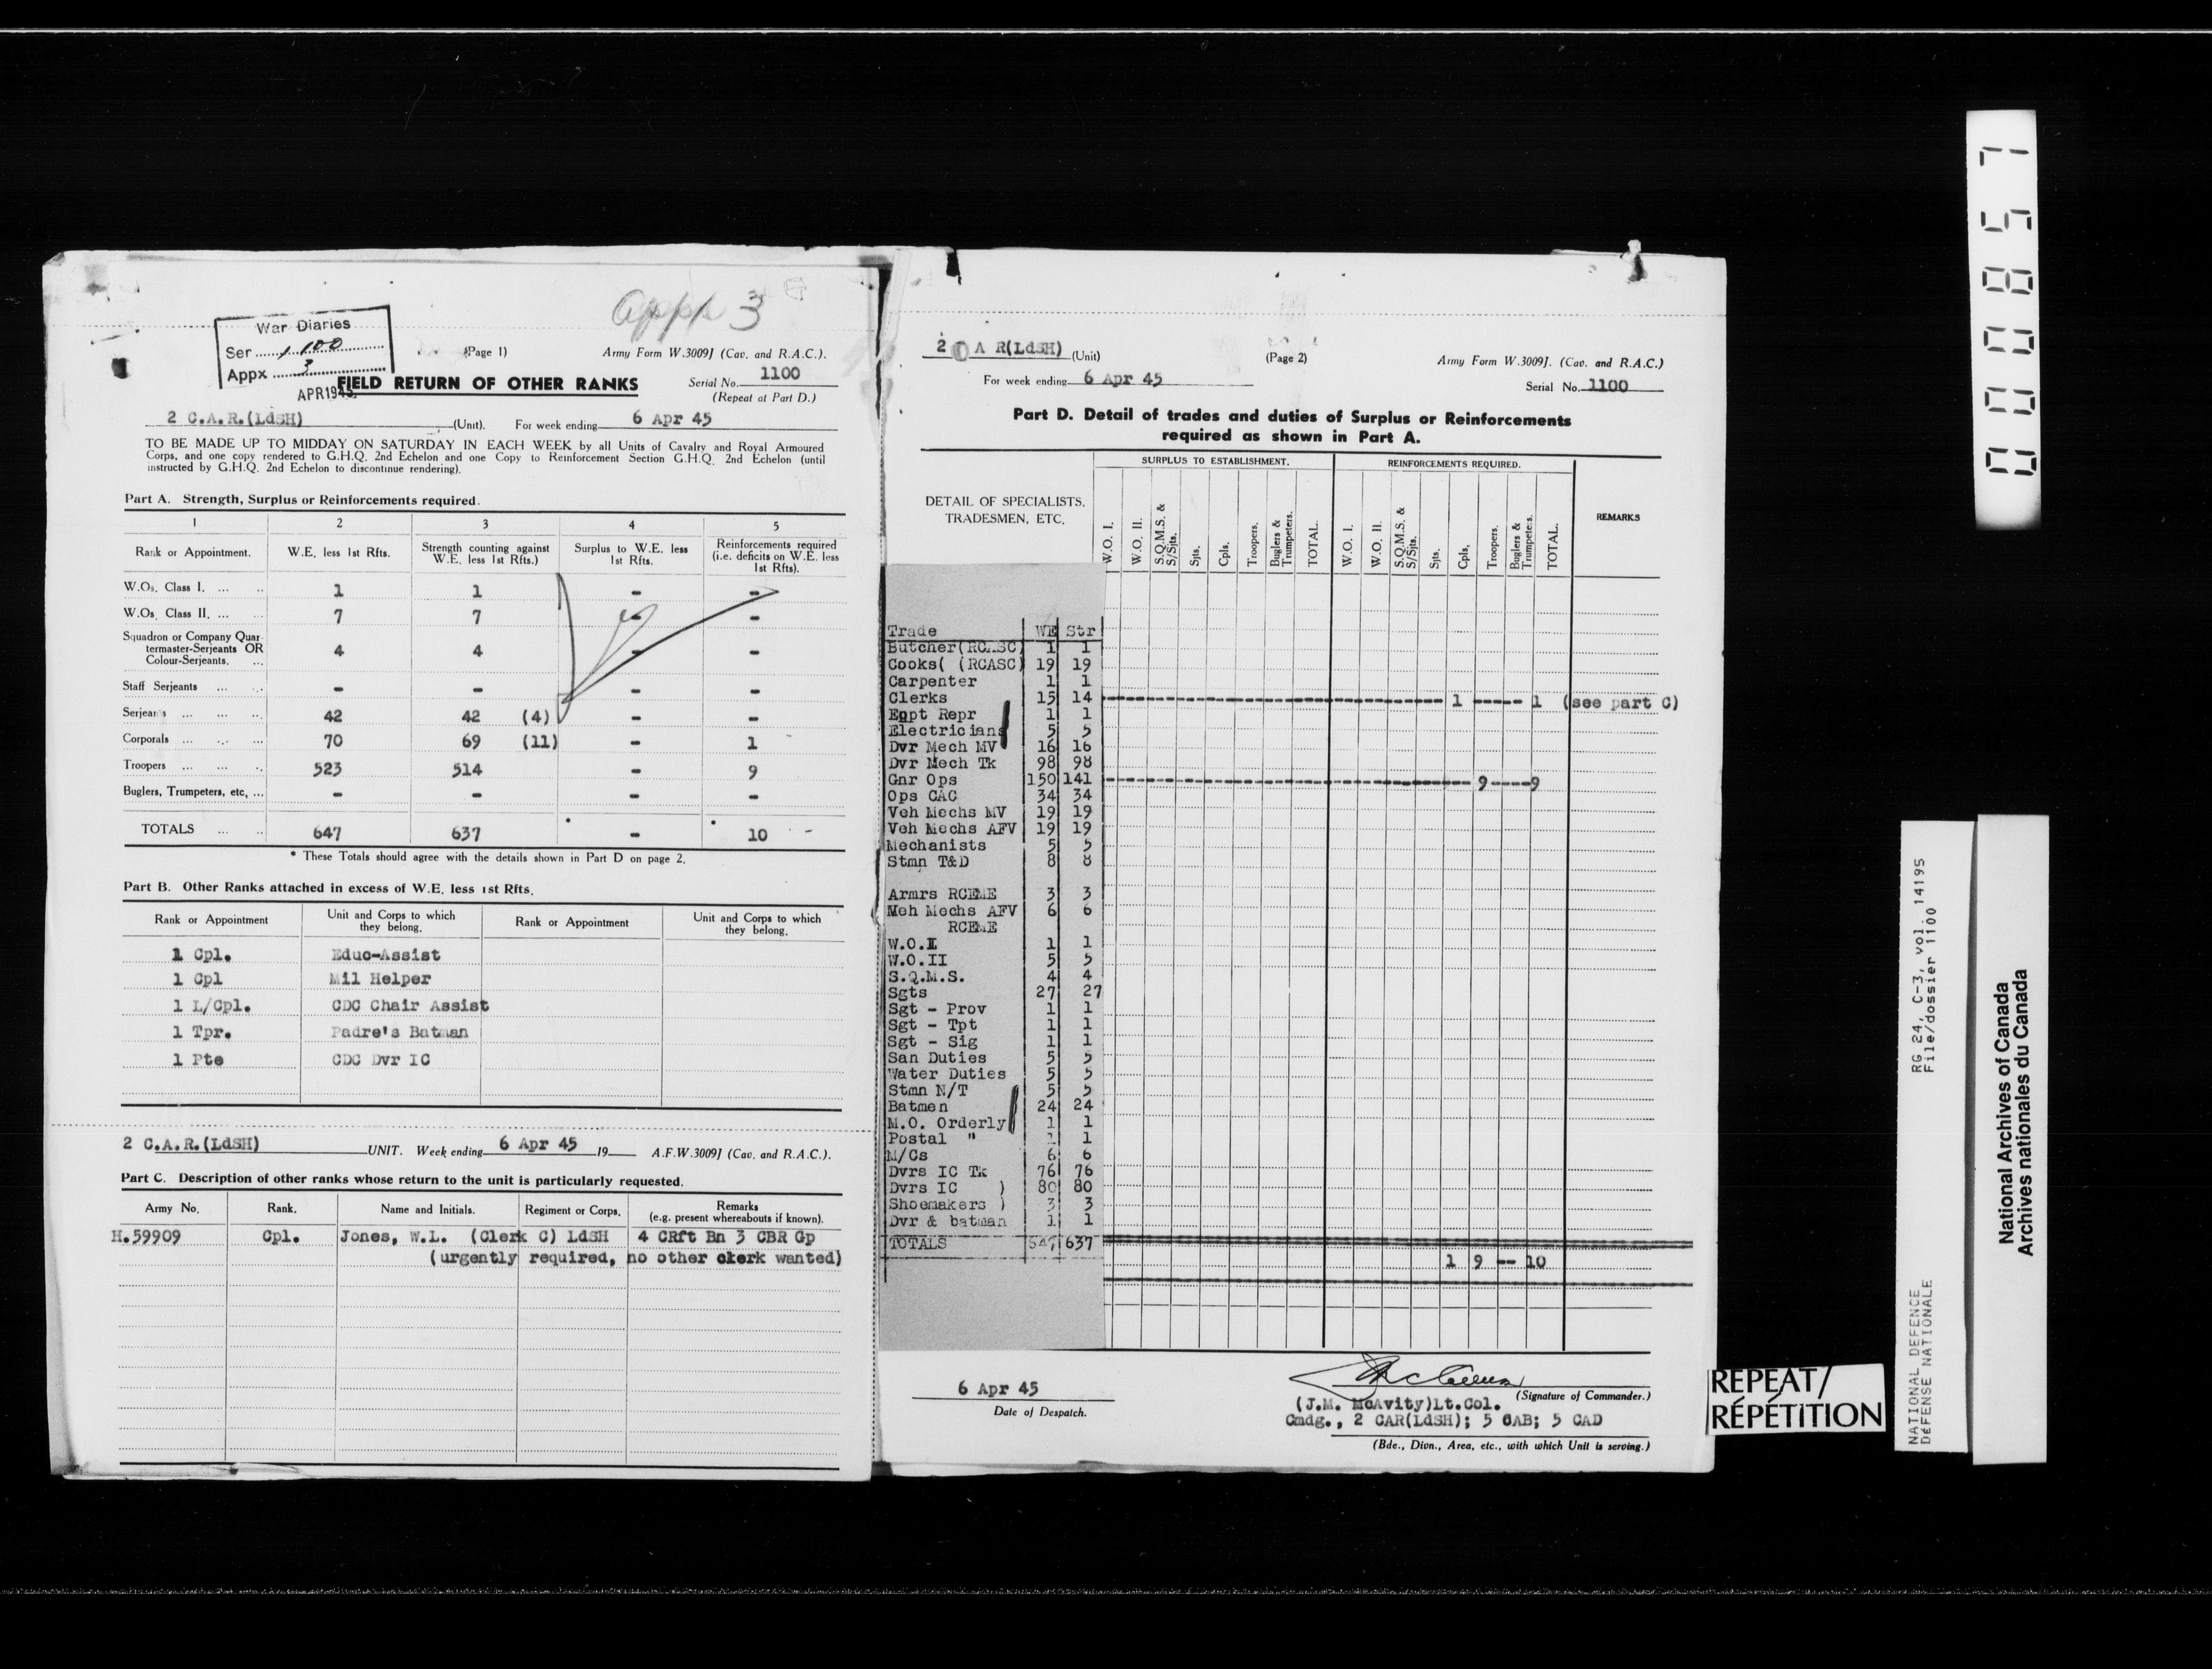 App 3
War Diaries
Ser. 1100
Appx 3
APR 1945
(Page 1)
Army Form W.3009J (Cav. and R.A.C.).
FIELD RETURN OF OTHER RANKS
Serial No. 1100
(Repeat at Part D.)
2 C.A.R.(LdSH) (Unit). For week ending 6 Apr 45
TO BE MADE UP TO MIDDAY ON SATURDAY IN EACH WEEK by all Units of Cavalry and Royal Armoured
Corps, and one copy rendered to G.H.Q. 2nd Echelon and one Copy to Reinforcement Section G.H.Q. 2nd Echelon (until
instructed by G.H.Q. 2nd Echelon to discontinue rendering).
Part A. Strength, Surplus or Reinforcements required.
1 2 3 4 5
Rank or Appointment. W.E. less 1st Rfts. Strength counting against W.E. less 1st Rfts.) Surplus to W.E. less 1st Rfts. Reinforcements required (i.e. deficits on W.E. less 1st Rfts).
W.Os. Class I. ... .. 1 1 - -
W.Os. Class II. ... .. 7 7 - -
Squadron or Company Quar-
termaster-Serjeants OR
Colour-Serjeants. ... 4 4 - -
Staff Serjeants ... .. - - - -
Serjeants ... ... .. 42 42 (4) - -
Corporals ... ... ... 70 69 (11) - 1
Troopers ... ... .. 523 514 - 9
Buglers, Trumpeters, etc, ... - - - -
TOTALS ... .. 647 637 * - * 10 -
* These Totals should agree with the details shown in Part D on page 2.
Part B. Other Ranks attached in excess of W.E. less 1st Rfts.
Rank or Appointment Unit and Corps to which they belong. Rank or Appointment Unit and Corps to which they belong.
1 Cpl. Educ-Assist
1 Cpl Mil Helper
1 L/Cpl. CDC Chair Assist
1 Tpr. Padre's Batman
1 Pte CDC Dvr IC
2 C.A.R.(LdSH) UNIT. Week ending 6 Apr 45 19 A.F.W.3009J (Cav. and R.A.C.).
Part C. Description of other ranks whose return to the unit is particularly requested.
Army No. Rank. Name and Initials. Regiment or Corps. Remarks (e.g. present whereabouts if known).
H.59909 Cpl. Jones, W.L. (Clerk C) LdSH 4 CRft Bn 3 CBR Gp
(urgently required, no other clerk wanted)
2 C A R(LdSH) (Unit)
(Page 2)
Army Form W.3009J. (Cav. and R.A.C.)
For week ending 6 Apr 45
Serial No. 1100
Part D. Detail of trades and duties of Surplus or Reinforcements
required as shown in Part A.
DETAIL OF SPECIALISTS, TRADESMEN, ETC.
SURPLUS TO ESTABLISHMENT. REINFORCEMENTS REQUIRED. REMARKS
W.O. I. W.O. II. S.Q.M.S. & S/Sjts. Sjts. Cpls. Troopers. Buglers & Trumpeters. TOTAL. W.O. I. W.O. II. S.Q.M.S. & S/Sjts. Sjts. Cpls, Troopers. Buglers & Trumpeters. TOTAL.
Trade WE Str
Butcher(RCASC) 1 1
Cooks( (RCASC) 19 19
Carpenter 1 1
Clerks 15 14 1 ----- 1 (see part C)
Eqpt Repr 1 1
Electricians 5 5
Dvr Mech MV 16 16
Dvr Mech Tk 98 98
Gnr Ops 150 141 9----9
Ops CAC 34 34
Veh Mechs MV 19 19
Veh Mechs AFV 19 19
Mechanists 5 5
Stmn T&D 8 8
Armrs RCEME 3 3
Meh Mechs AFV 6 6
RCEME
W.O.I 1 1
W.O.II 5 5
S.Q.M.S. 4 4
Sgts 27 27
Sgt - Prov 1 1
Sgt - Tpt 1 1
Sgt - Sig 1 1
San Duties 5 5
Water Duties 5 5
Stmn N/T 5 5
Batmen 24 24
M.O. Orderly 1 1
Postal " 1 1
M/Cs 6 6
Dvrs IC Tk 76 76
Dvrs IC ) 80 80
Shoemakers ) 3 3
Dvr & batman 1 1
TOTALS 647 637
1 9 -- 10
6 Apr 45
Date of Despatch.
(Signature of Commander.)
(J.M. McAvity)Lt.Col.
Cmdg., 2 CAR(LdSH); 5 CAB; 5 CAD
(Bde., Divn., Area, etc., with which Unit is serving.)
REPEAT/
RÉPÉTITION
000857
NATIONAL DEFENCE
DÉFENSE NATIONALE
RG 24, C-3, vol. 14195
File/dossier 1100
National Archives of Canada
Archives nationales du Canada